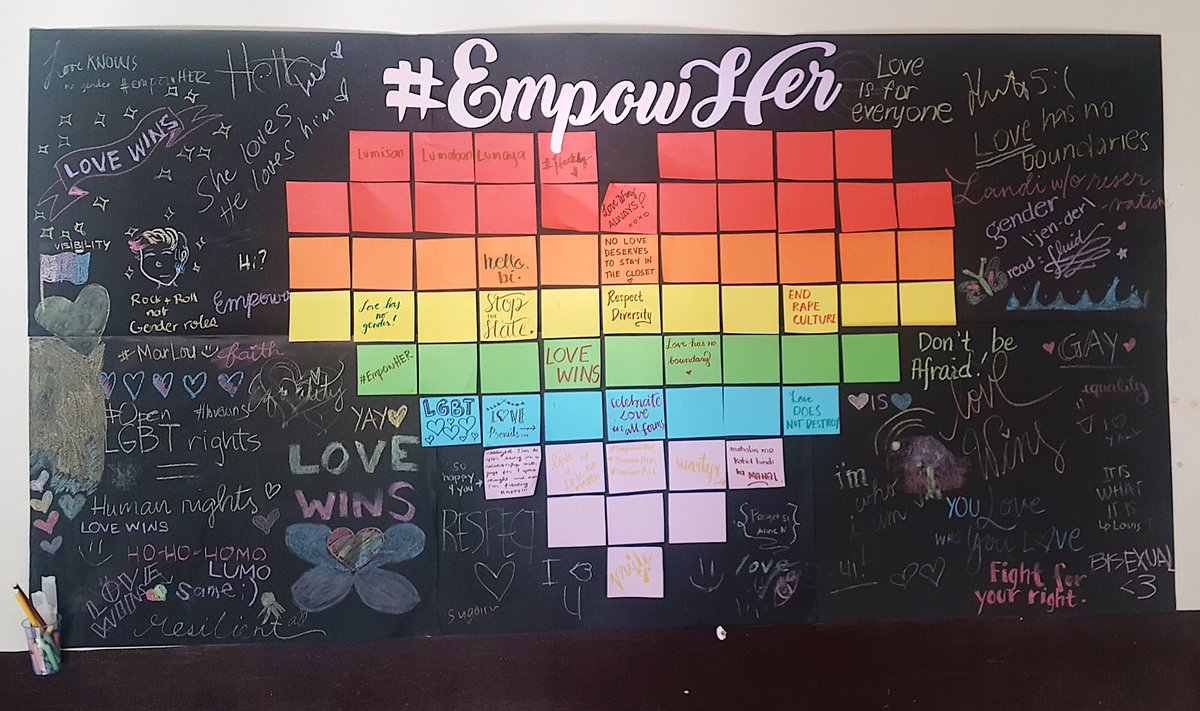 #EmpowHer
Love KNOWS
no gender #empowHER
LOVE WINS
She loves
He loves him
VISIBILITY
Hi?
Rock + Roll
not
Gender roles
Empower
Love
is for
everyone
LOVE has no
boundaries
Landi w/o reser
-vations
gender
\'jen-der\
read: fluid
Lumisan
Lumaban
Lumaya
ALWAYS!
xoxo
hello.
bi.
NO LOVE
DESERVES
TO STAY IN
THE CLOSET
Love has
no
gender!
Stop
the
Hate.
Respect
Diversity
END
RAPE
CULTURE
#EmpowHER
LOVE
WINS
Love has no
boundary
LGBT
LOVE
Prevails...
celebrate
Love
in all forms
Love
DOES
NOT DESTROY
#MarLou
faith
equality
#Open
#lovewins
LGBT rights
YAY
LOVE
WINS
Human rights
LOVE WINS
HO-HO-HOMO
LUMO
LOVE
WINS
Same :)
resilient
so
happy
4 you
RESPECT
I <3
U
#EmpowHer
#EmpowHim
#EmpowALL
martya
mahalin mo
kahit hindi
ka MAHAL
smile
love
Don't be
Afraid!
GAY
equality
IS
love
Wins
i'm
who
i am
YOU Love
WHO you LOVE
IT IS
WHAT
IT IS
Hi!
Fight for
your right.
BISEXUAL
<3